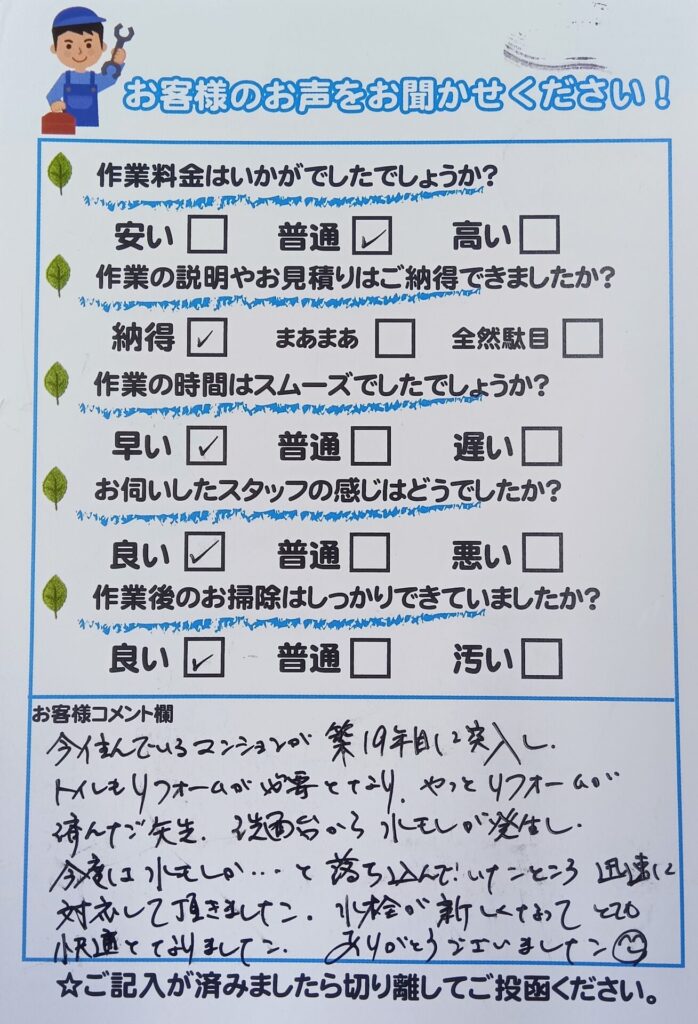 お客様のお声をお聞かせください！
作業料金はいかがでしたでしょうか？
安い 普通 ✓ 高い
作業の説明やお見積りはご納得できましたか？
納得 ✓ まあまあ 全然駄目
作業の時間はスムーズでしたでしょうか？
早い ✓ 普通 遅い
お伺いしたスタッフの感じはどうでしたか？
良い ✓ 普通 悪い
作業後のお掃除はしっかりできていましたか？
良い ✓ 普通 汚い
お客様コメント欄
今住んでいるマンションが 築19年目に突入し、
トイレもリフォームが必要となり、やっとリフォームが
済んだ矢先、洗面台から水モレが発生し、
今度は水モレか…と落ち込んでいたところ 迅速に
対応して頂きました。水栓が新しくなって とても
快適となりました。 ありがとうございました
☆ご記入が済みましたら切り離してご投函ください。